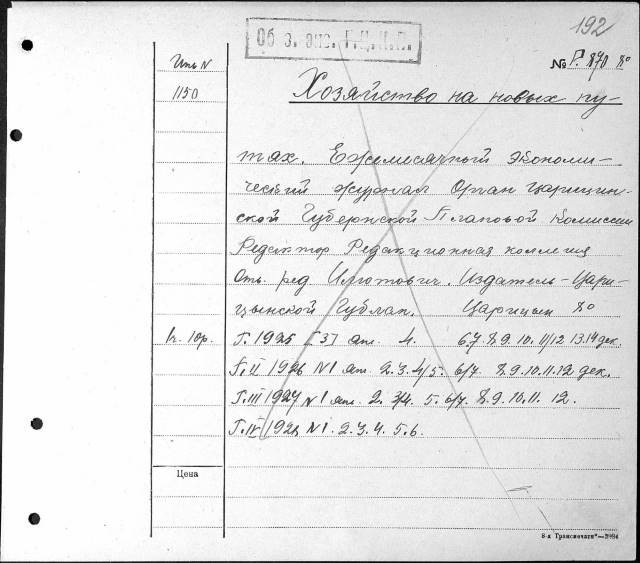 192
Об з. экз. Г.Ц.К.П.
Инв N
№ Р. 870 8°
1150
Хозяйство на новых пу-
тях. Ежемесячный экономи-
ческий журнал Орган Царицин-
ской Губернской Плановой Комиссии
Редактор Редакционная коллегия
Отв. ред. Издатель - Цари-
цынской Губплан. Царицын 8°
Г. 1925 [3] 4. 6.7.8.9.10.11/12 13.14 дек.
Г. II 1926 N1 янв. 2.3.4/5. 6/7. 8.9.10.11.12 дек.
Г. III 1927 N1 янв. 2. 3/4. 5. 6/7. 8.9.10.11. 12.
Г. IV 1928 N1. 2.3.4. 5.6.
Цена
8-я Транспечати"—